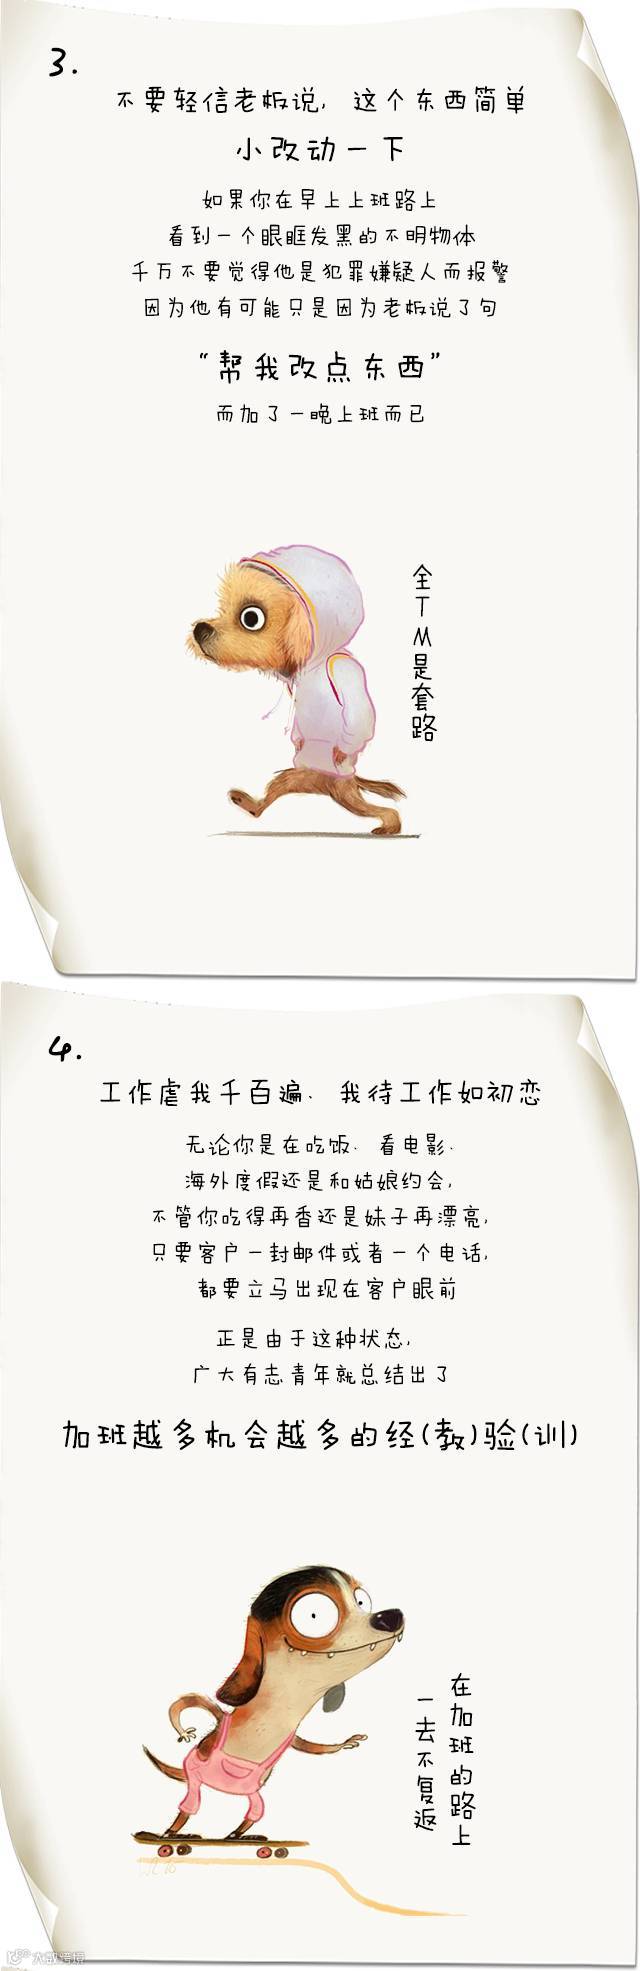 3.
不要轻信老板说，这个东西简单
小改动一下
如果你在早上上班路上
看到一个眼眶发黑的不明物体
千万不要觉得他是犯罪嫌疑人而报警
因为他有可能只是因为老板说了句
“帮我改点东西”
而加了一晚上班而已
全TM是套路
4.
工作虐我千百遍、我待工作如初恋
无论你是在吃饭、看电影、
海外度假还是和姑娘约会，
不管你吃得再香还是妹子再漂亮，
只要客户一封邮件或者一个电话，
都要立马出现在客户眼前
正是由于这种状态，
广大有志青年就总结出了
加班越多机会越多的经(教)验(训)
在加班的路上
一去不复返
大数跨境